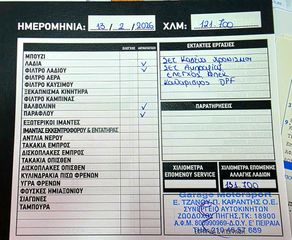 ΗΜΕΡΟΜΗΝΙΑ: 13/2/2026 ΧΛΜ: 121.700
ΕΛΕΓΧΟΣ ΑΝΤΙΚΑΤΑΣΤΑΣΗ
ΕΚΤΑΚΤΕΣ ΕΡΓΑΣΙΕΣ
ΜΠΟΥΖΙ
ΛΑΔΙΑ ✓
ΦΙΛΤΡΟ ΛΑΔΙΟΥ ✓
ΦΙΛΤΡΟ ΑΕΡΑ
ΦΙΛΤΡΟ ΚΑΥΣΙΜΟΥ
ΞΕΚΑΠΝΙΣΜΑ ΚΙΝΗΤΗΡΑ
ΦΙΛΤΡΟ ΚΑΜΠΙΝΑΣ
ΒΑΛΒΟΛΙΝΗ ✓
ΠΑΡΑΦΛΟΥ ✓
ΕΞΩΤΕΡΙΚΟΙ ΙΜΑΝΤΕΣ
ΙΜΑΝΤΑΣ ΕΚΚΕΝΤΡΟΦΟΡΟΥ & ΕΝΤΑΤΗΡΑΣ
ΑΝΤΛΙΑ ΝΕΡΟΥ
ΤΑΚΑΚΙΑ ΕΜΠΡΟΣ
ΔΙΣΚΟΠΛΑΚΕΣ ΕΜΠΡΟΣ
ΤΑΚΑΚΙΑ ΟΠΙΣΘΕΝ
ΔΙΣΚΟΠΛΑΚΕΣ ΟΠΙΣΘΕΝ
ΚΥΛΙΝΔΡΑΚΙΑ ΠΙΣΩ ΦΡΕΝΩΝ
ΥΓΡΑ ΦΡΕΝΩΝ
ΦΟΥΣΚΕΣ ΗΜΙΑΞΟΝΙΟΥ
ΣΙΑΓΩΝΕΣ
ΤΑΜΠΟΥΡΑ
ΣΕΤ Καδενα χρονισμου
ΣΕΤ
ελεγχος
Καθαρισμος DPF
ΠΑΡΑΤΗΡΗΣΕΙΣ
ΧΙΛΙΟΜΕΤΡΑ ΕΠΟΜΕΝΟΥ SERVICE
ΧΙΛΙΟΜΕΤΡΑ ΕΠΟΜΕΝΗΣ ΑΛΛΑΓΗΣ ΛΑΔΙΟΥ
131.700
Garage Motorsport
Ε. ΤΖΑΝΟΥ-Π. ΚΑΡΑΝΤΗΣ Ο.Ε.
ΣΥΝΕΡΓΕΙΟ ΑΥΤΟΚΙΝΗΤΩΝ
ΖΩΟΔΟΧΟΥ ΠΗΓΗΣ, ΤΚ: 18900